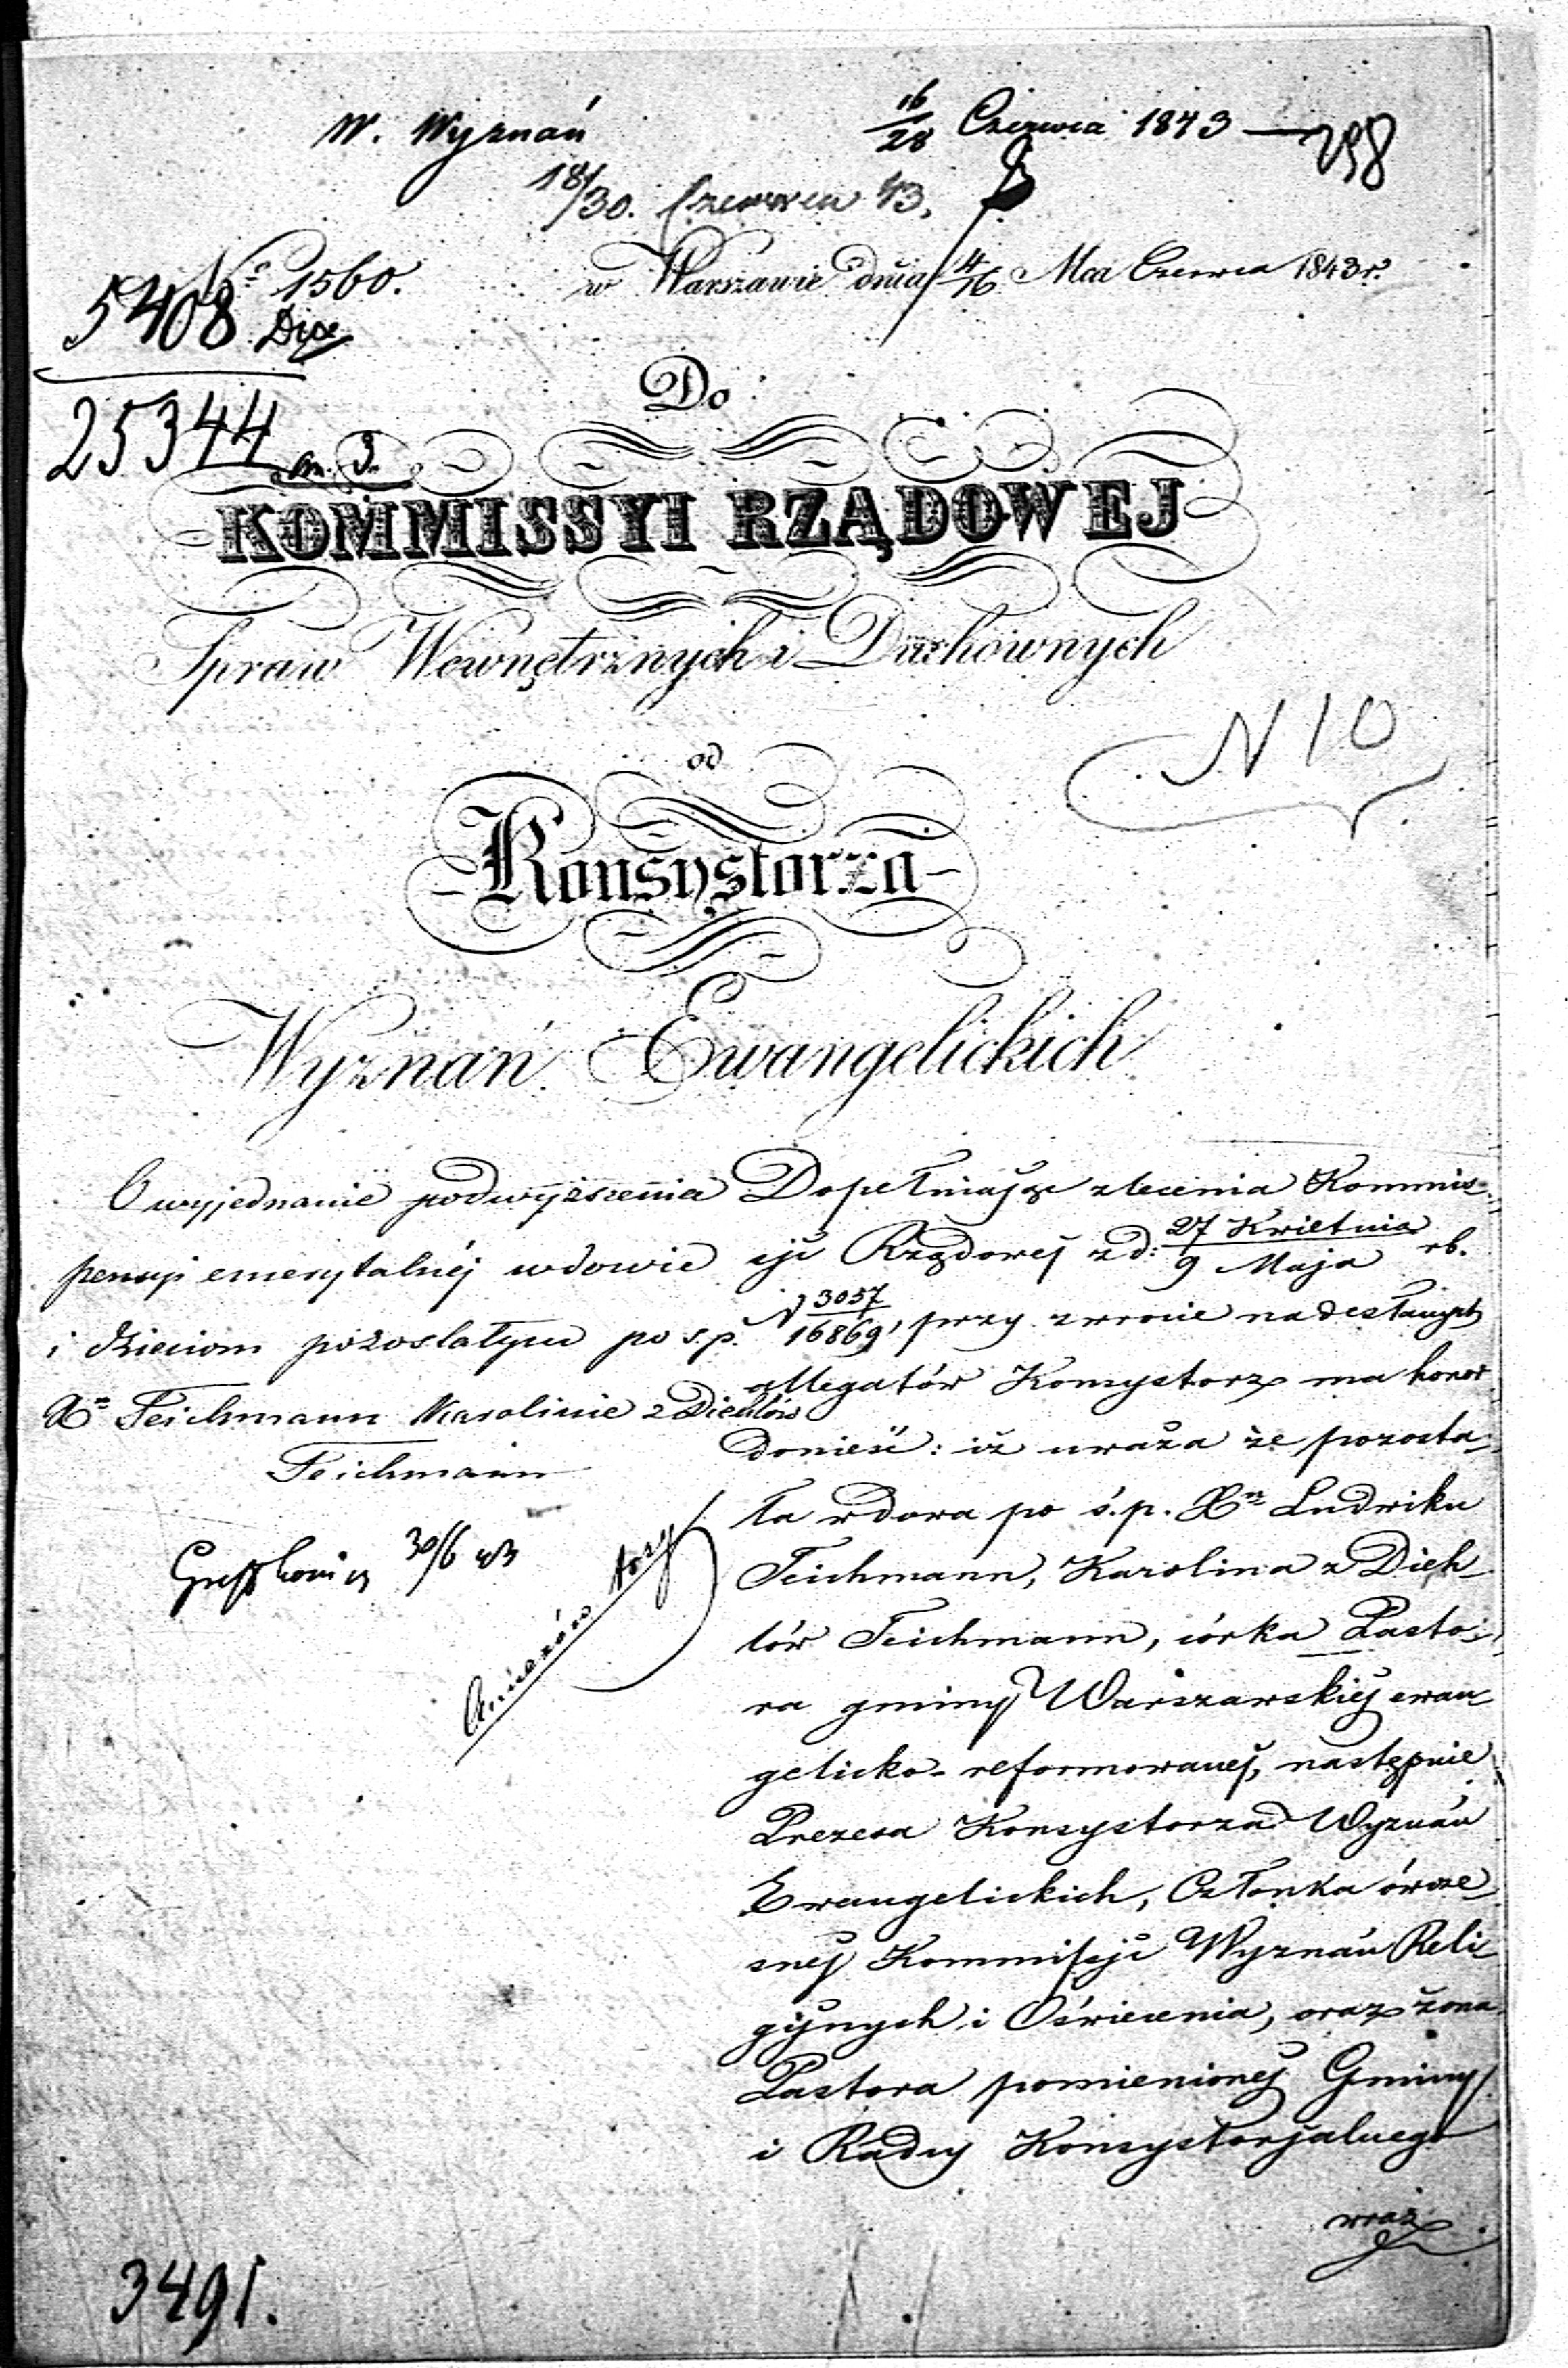 W. Wyznań
16/28 Czerwca 1843 — 298
18/30. Czerwca 43.
No 1560.
w Warszawie dnia 4/16 Mca Czerwca 1843 r.
5408
25344
Do
KOMMISSYI RZĄDOWEJ
Spraw Wewnętrznych i Duchownych
N 10
od
Konsystorza
Wyznań Ewangelickich
O wyjednanie podwyższenia
pensyi emerytalnéj wdowie
i dzieciom pozostałym po s.p.
Xn Teichmann Karolinie z Diehlów
Teichmann
30/6 43
Dopełniając zlecenia Kommis
syi Rządowej z d: 27 Kwietnia / 9 Maja rb.
N 3057/16869, przy zwrocie nadesłanych
allegatów Konsystorz ma honor
donieść: iż uważa że pozosta-
ła wdowa po ś.p. Xn Ludwiku
Teichmann, Karolina z Dieh-
lów Teichmann, córka Pasto-
ra gminy Warszawskiej ewan
gelicko-reformowanej, następnie
Prezesa Konsystorza Wyznań
Ewangelickich, Członka ówcze
snej Kommissyi Wyznań Reli
gijnych i Oświecenia, oraz żona
Pastora pomienionej Gminy
i Radcy Konsystorjalnego
wraz
3491.